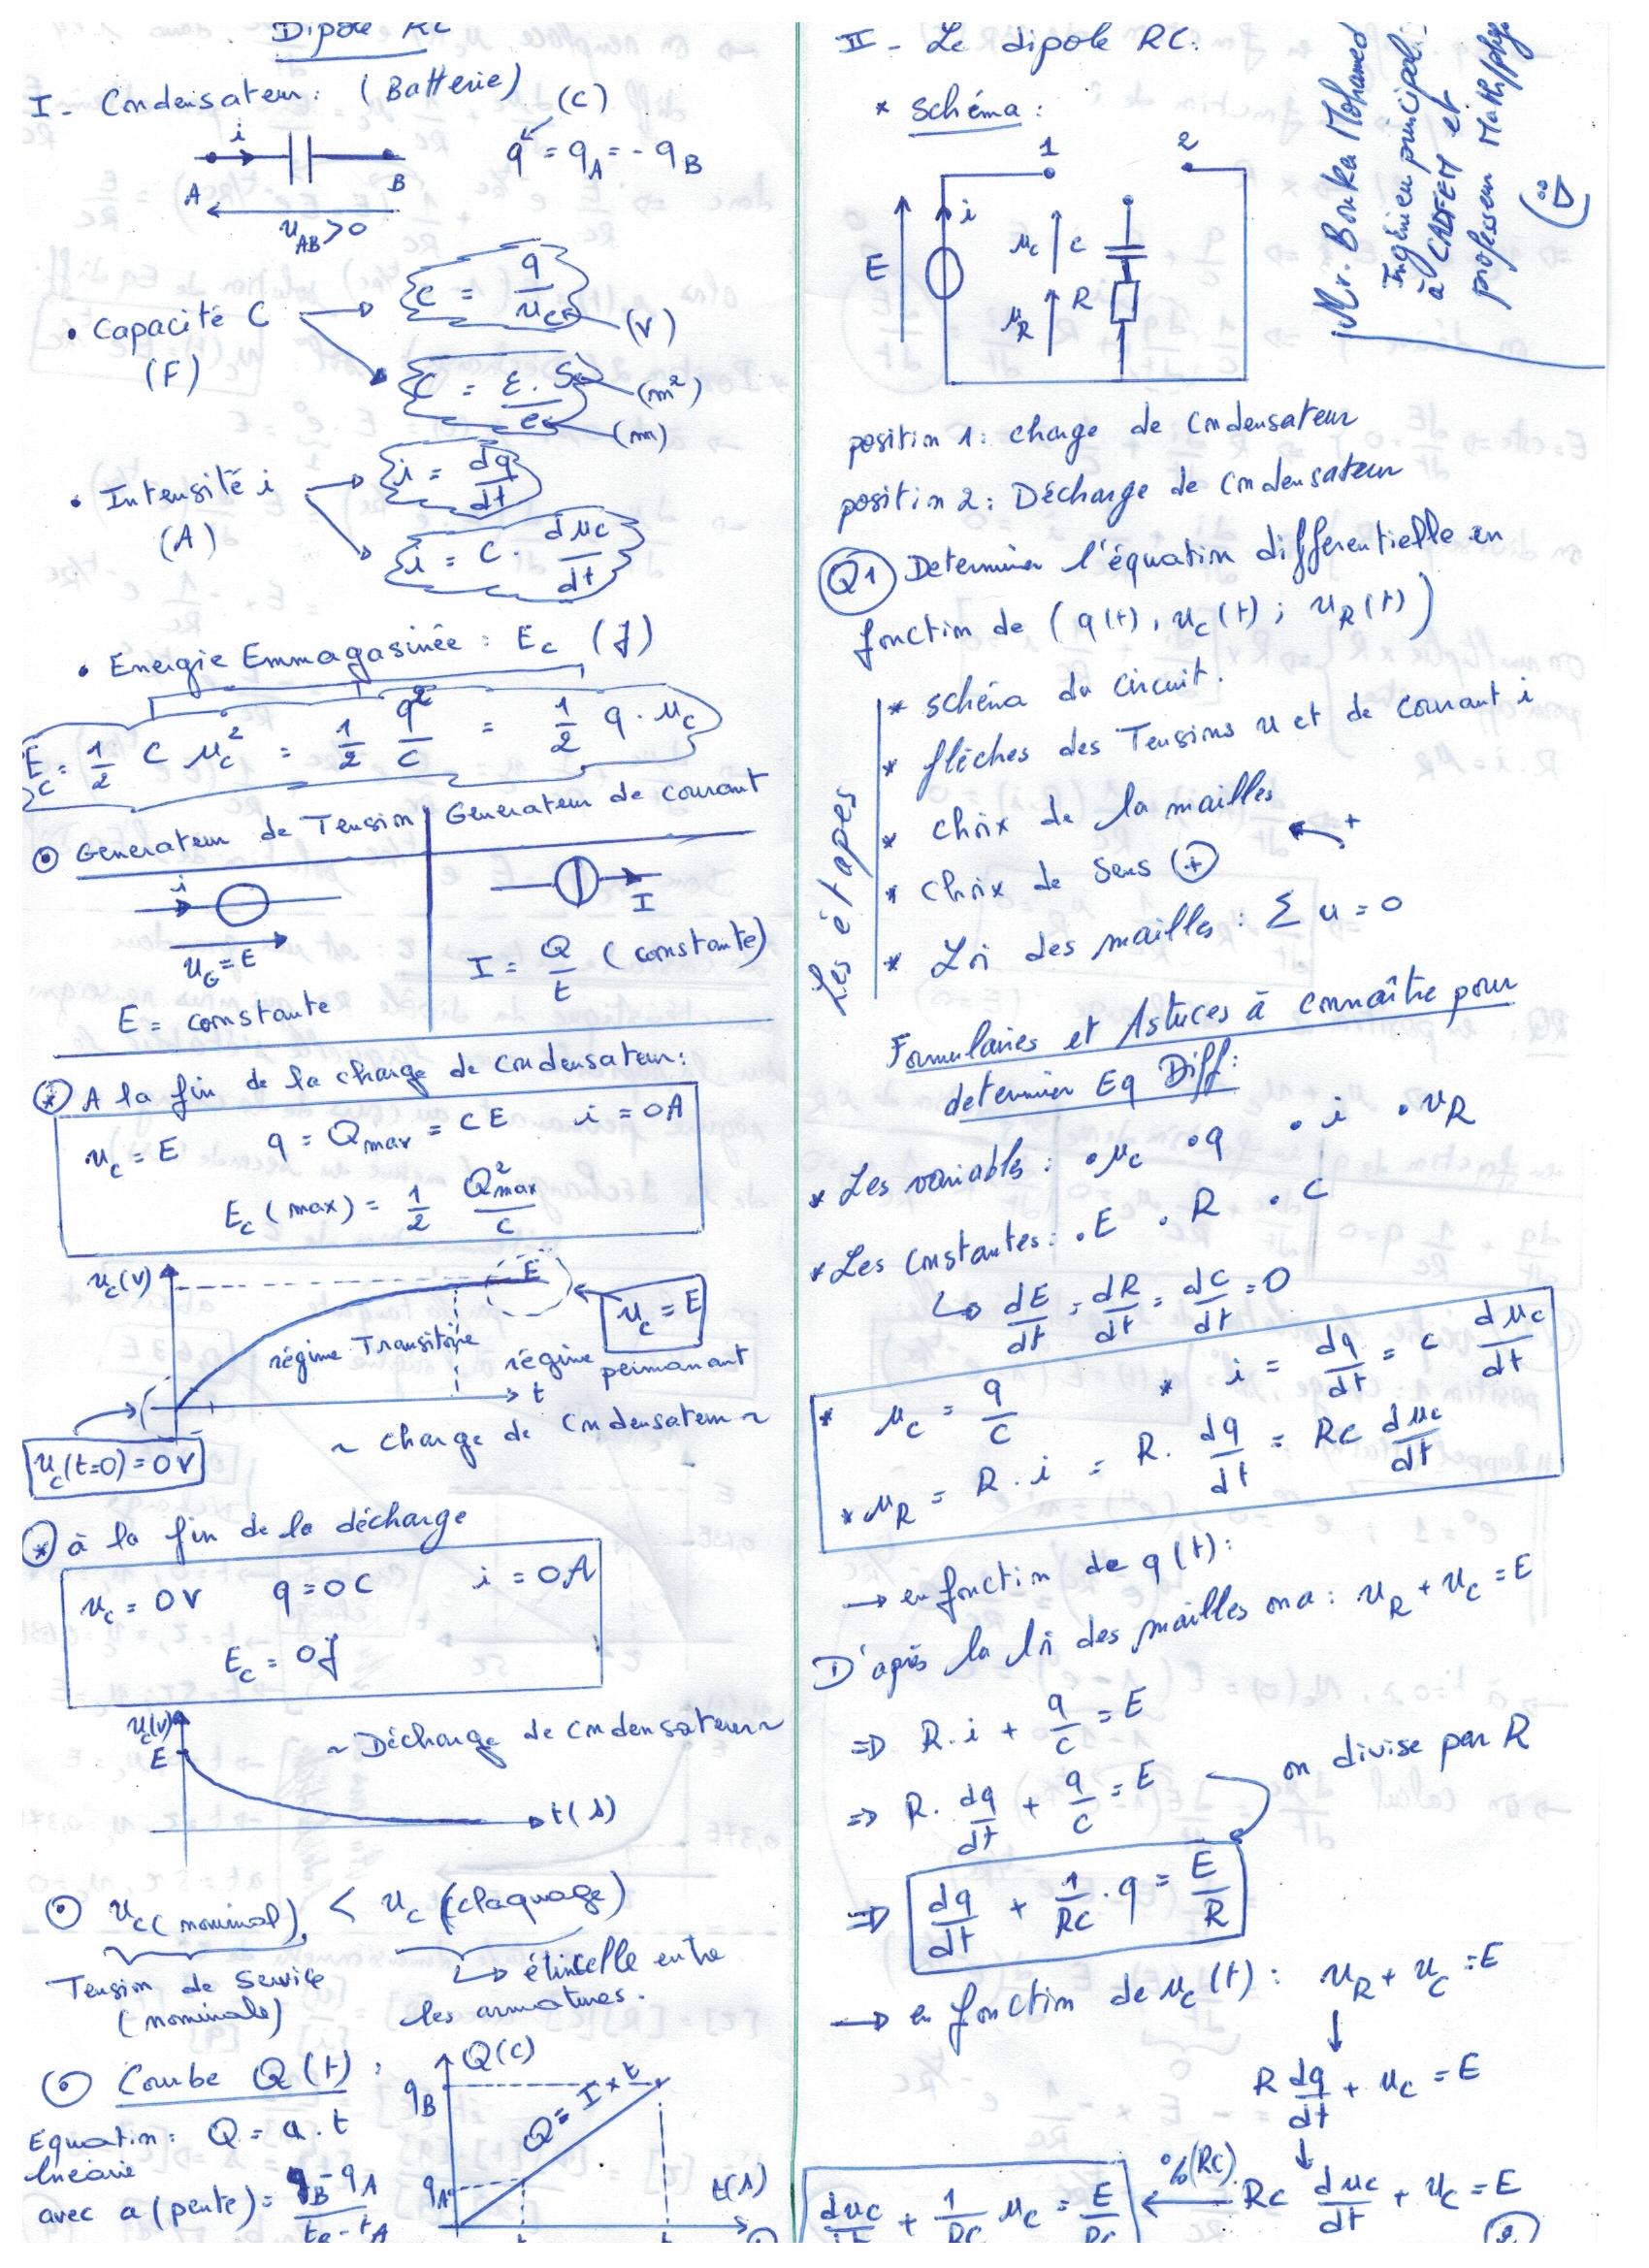 Dipôle RC
I - Condensateur : (Batterie)
(C)
q = qA = - qB
i
A B
uAB > 0
• Capacité C
(F)
C = q / uC (V)
C = ε . S / e (m²)
(m)
• Intensité i
(A)
i = dq/dt
i = C . duc/dt
• Energie Emmagasinée : Ec (J)
Ec = 1/2 C uc² = 1/2 q²/C = 1/2 q . uc
Generateur de Tension | Generateur de courant
i
uG = E
E = constante
I
I = Q/t (constante)
* A la fin de la charge de condensateur :
uc = E q = Qmax = CE i = 0A
Ec (max) = 1/2 Q²max / C
uc(V)
E
uc = E
régime Transitoire
régime permanant
t
uc(t=0) = 0V
~ charge de condensateur ~
* à la fin de la décharge
uc = 0V q = 0C i = 0A
Ec = 0J
uc(V)
E
~ Décharge de condensateur ~
t(s)
uc(nominal) < uc (claquage)
Tension de service
(nominale)
↳ étincelle entre
les armatures.
Courbe Q(t) :
Q(C)
qB
Q = I × t
qA
t(s)
Equation : Q = a . t
linéaire
avec a (pente) = qB - qA / tB - tA
II - Le dipole RC :
* schéma :
1 2
E i uc C
uR R
Mr. Bouka Mohamed
Ingénieur principal
à CADFEM et
professeur Math/phys
position 1 : charge de condensateur
position 2 : Décharge de condensateur
Q1 Determiner l'équation différentielle en
fonction de (q(t), uc(t) ; uR(t))
Les étapes
* schéma du circuit.
* flèches des Tensions u et de courant i
* choix de la mailles
* choix de sens (+)
+
* Loi des mailles : Σ u = 0
Formulaires et Astuces à connaître pour
determiner Eq Diff :
* Les variables : • uc • q • i • uR
* Les constantes : • E • R • C
↳ dE/dt = dR/dt = dC/dt = 0
* uc = q/C * i = dq/dt = C duc/dt
* uR = R . i = R . dq/dt = RC duc/dt
→ en fonction de q(t) :
D'après la loi des mailles on a : uR + uc = E
⇒ R . i + q/C = E
⇒ R . dq/dt + q/C = E
on divise par R
⇒ dq/dt + 1/RC . q = E/R
→ en fonction de uc(t) : uR + uc = E
↓
R dq/dt + uc = E
↓
RC duc/dt + uc = E
%(RC)
duc/dt + 1/RC uc = E/RC
2